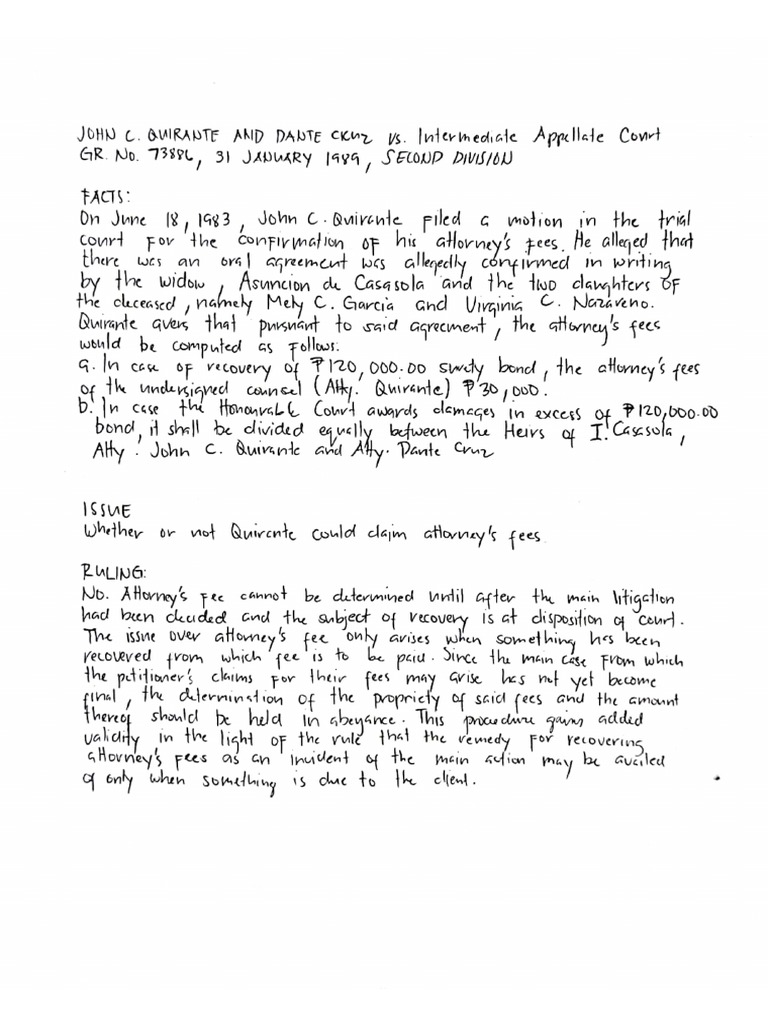 JOHN C. QUIRANTE AND DANTE CRUZ vs. Intermediate Appellate Court
GR. No. 73886, 31 JANUARY 1989, SECOND DIVISION
FACTS:
On June 18, 1983, John C. Quirante filed a motion in the trial
court for the confirmation of his attorney's fees. He alleged that
there was an oral agreement was allegedly confirmed in writing
by the widow, Asuncion de Casasola and the two daughters of
the deceased, namely Mely C. Garcia and Virginia C. Nazareno.
Quirante avers that pursuant to said agreement, the attorney's fees
would be computed as follows:
a. In case of recovery of ₱120,000.00 surety bond, the attorney's fees
of the undersigned counsel (Atty. Quirante) ₱30,000.
b. In case the Honourable Court awards damages in excess of ₱120,000.00
bond, it shall be divided equally between the Heirs of I. Casasola,
Atty. John C. Quirante and Atty. Dante Cruz
ISSUE
Whether or not Quirante could claim attorney's fees
RULING:
No. Attorney's fee cannot be determined until after the main litigation
had been decided and the subject of recovery is at disposition of court.
The issue over attorney's fee only arises when something has been
recovered from which fee is to be paid. Since the main case from which
the petitioner's claims for their fees may arise has not yet become
final, the determination of the propriety of said fees and the amount
thereof should be held in abeyance. This procedure gains added
validity in the light of the rule that the remedy for recovering
attorney's fees as an incident of the main action may be availed
of only when something is due to the client.